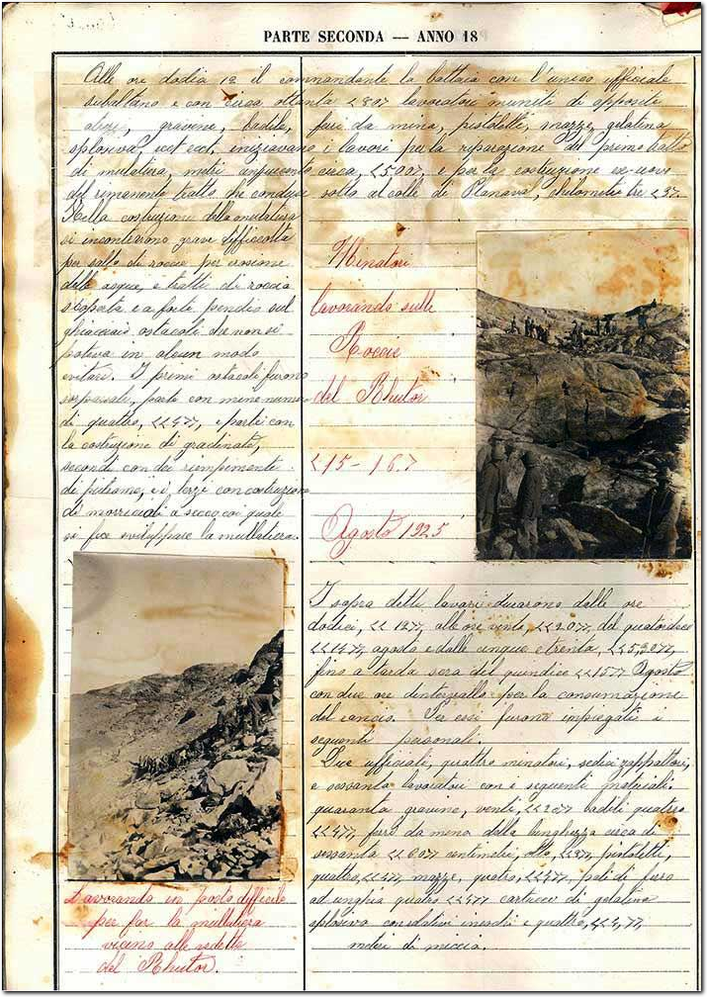 PARTE SECONDA — ANNO 18
Alle ore dodici 12 il commandante la batteria con l'unico ufficiale
subaltano e con circa ottanta <80> lavoratori muniti di appositi
gravine, badile, fari da mina, pistoletti, mazze, gelatina
splosiva, ecct ecct, iniziavano i lavori per la riparazione del primo tratto
di mulatiera, metri cinquecento circa, <500>, e per la costruzione ex-novo
del rimanente tratto che conduce sotto al colle di Planaval, chilometri tre <3>.
Nella costruzione della mulatiera
si incontrarono grave difficoltà
per salto di roccie per erosione
delle acque, e tratti di roccia
scoperta e a forte pendio sul
ghiacciaio ostacoli che non si
poteva in alcun modo
evitari. I primi ostacoli furono
sorpassati, parte con mine numero
di quattro, <<4>>, e parti con
la costruzione di gradinate,
secondi con dei riempimenti
di pietrame, e i terzi con costruzione
di morriccioli a secco coi quale
si fece sviluppare la mullatiera.
Minatori
lavorando sulle
Roccie
del Rhutor
<15-16>
Agosto 1925
Lavorando in posto difficile
per far la mullatiera
vicino alle vedette
del Rhutor.
I sopra detti lavori durarono dalle ore
dodici, <<12>>, alle ore venti, <<20>>, del quatordici
<<14>>, agosto e dalle cinque e trenta, <<5,30>>,
fino a tarda sera del quindice <<15>> Agosto
con due ore d'intervallo per la consumazione
del rancio. Per essi furono impiegati i
seguenti personali.
Due ufficiali, quattro minatori, sedici zappattori,
e sessanta lavoratori con e seguenti materiali,
quaranta gravine, venti, <<20>> badili quattro
<<4>>, fari da mina della lunghezza circa di
sessanta <<60>> centimetri, otto, <<8>>, pistoletti,
quattro, <<4>>, mazze, quatro, <<4>>, pali di ferro
ad unghia quatro <<4>> cartucci di gelatina
splosiva con relativi inneschi e quattro, <<4>>,
metri di miccia.